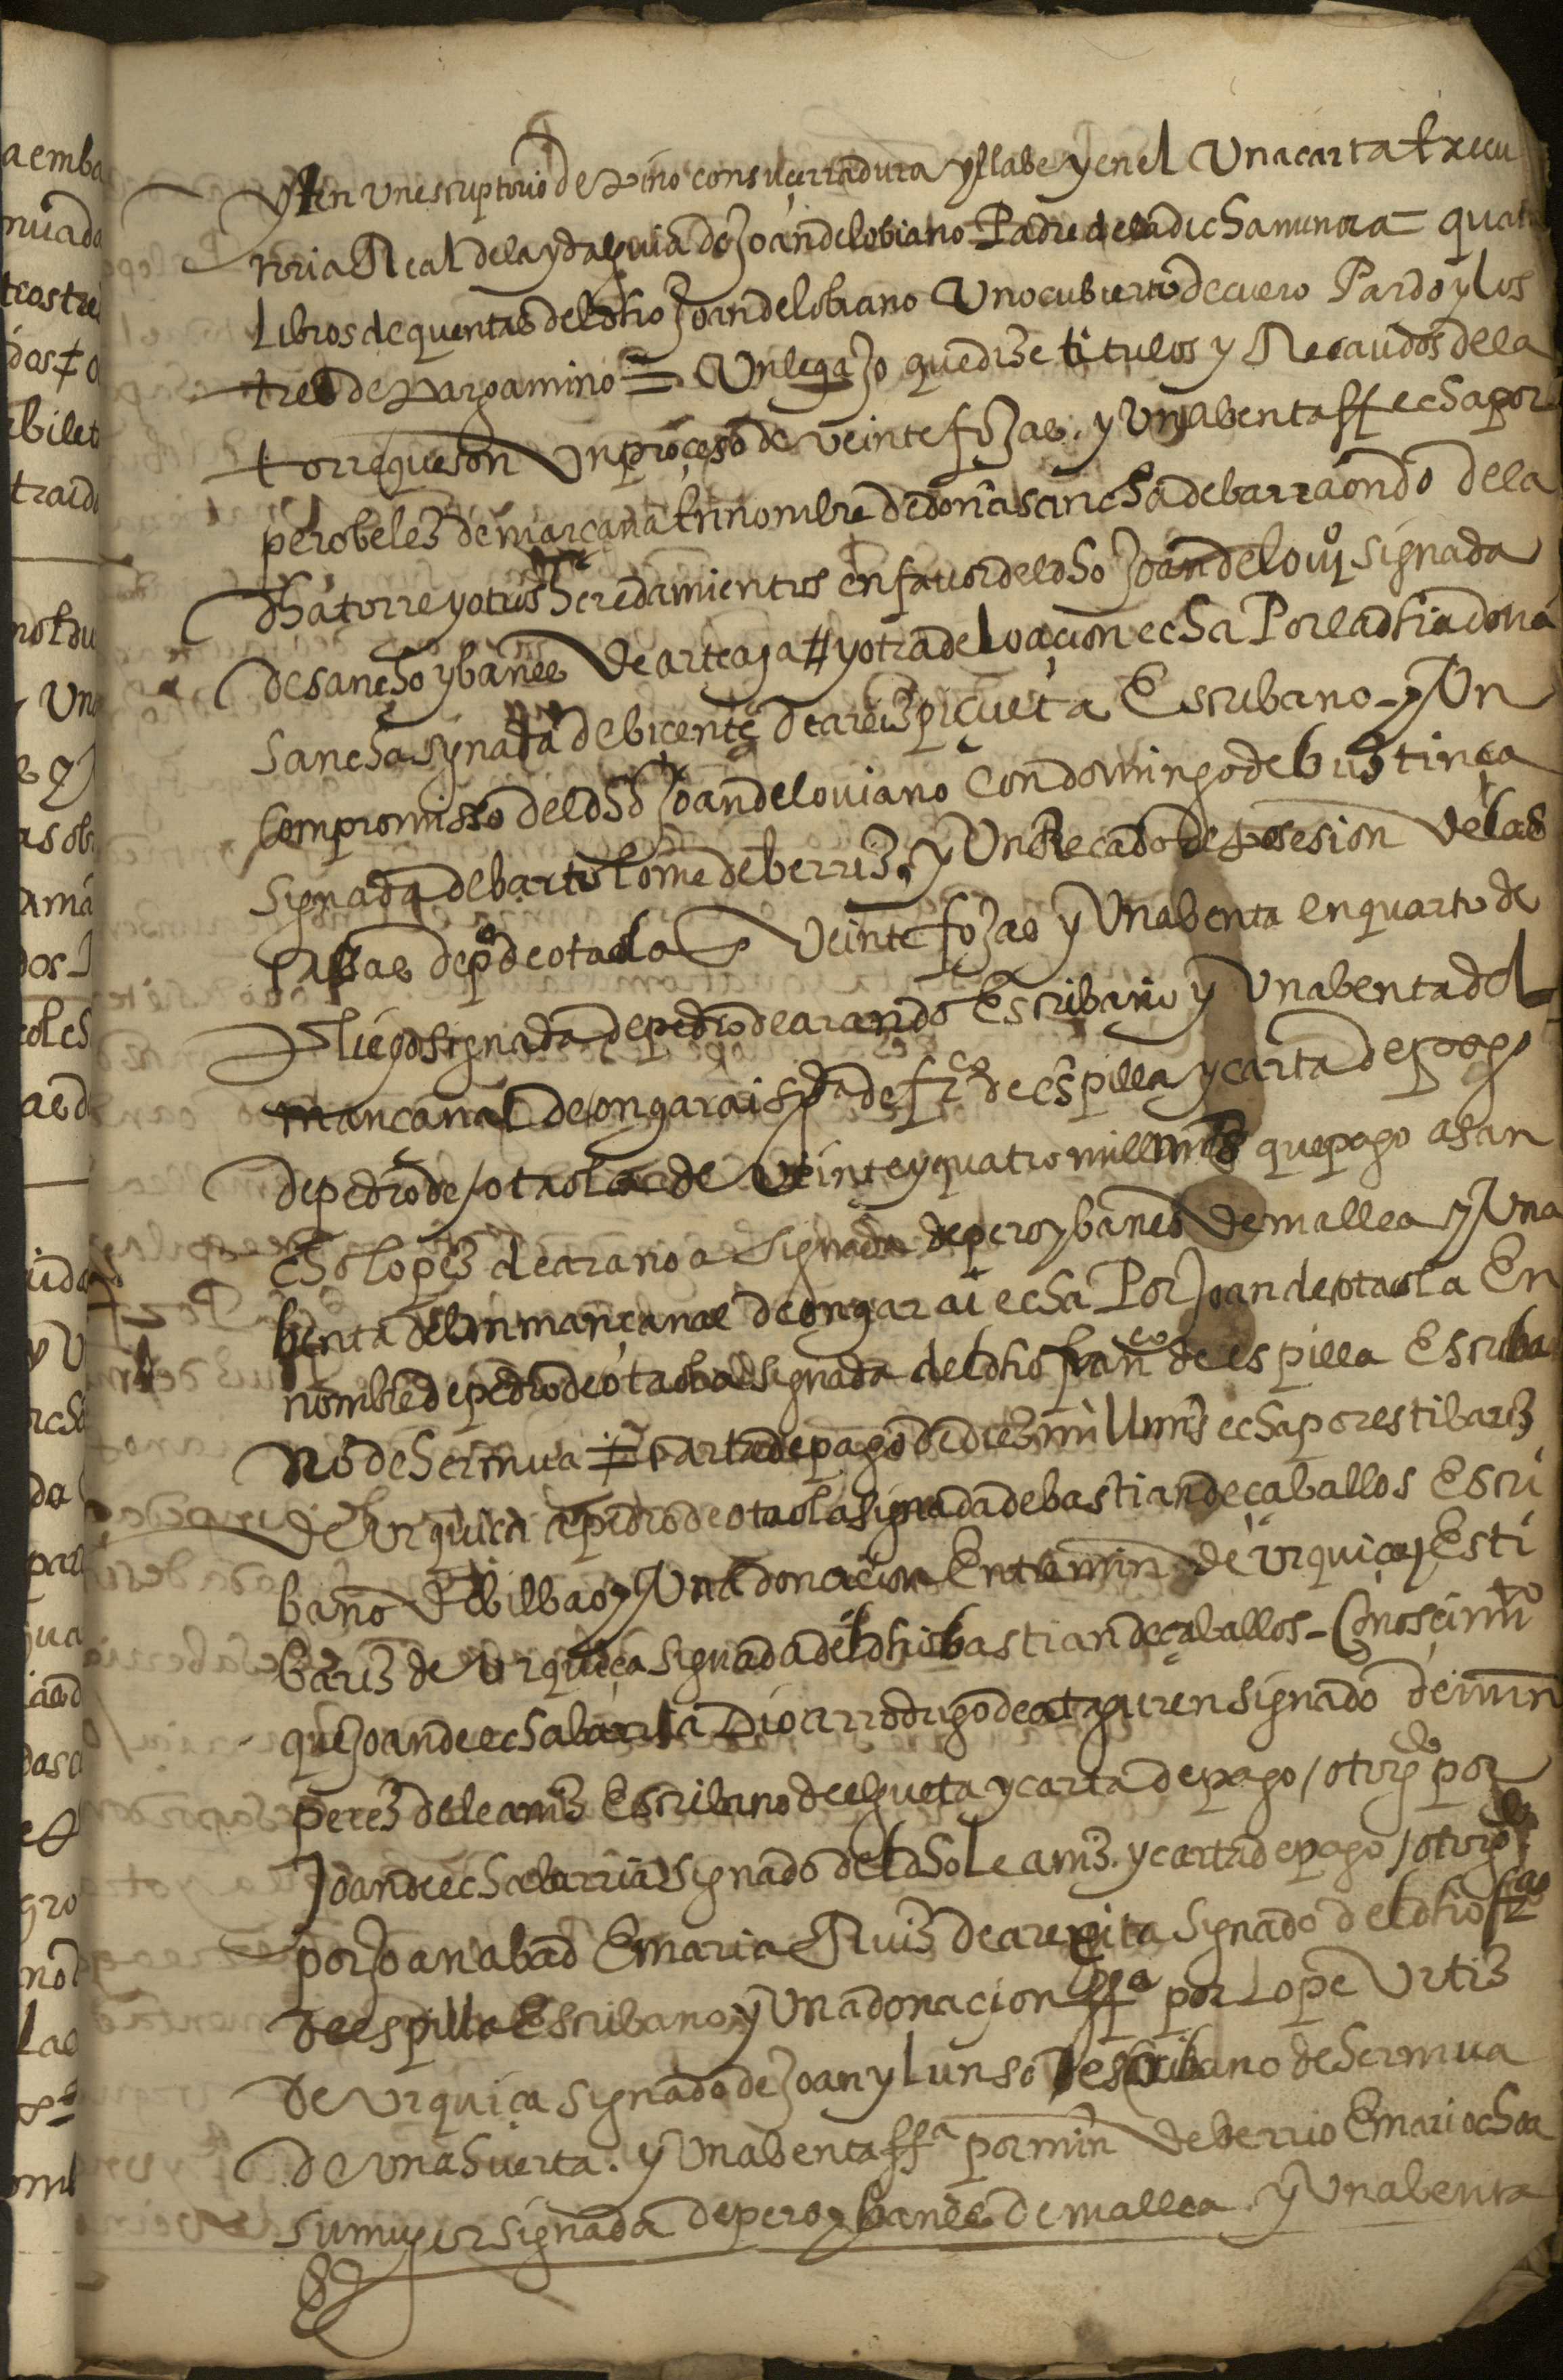 aemba
nuada
trostre
dos
ebilet
traido
Yten un escriptorio de pino con su çerradura y llabe y en el Una carta Execu
toria Real de la ydalguia de Joan de lobiano Padre de la dicha menora = quatro
Libros de quentas del dho Joan de lobiano Uno cubierto de cuero Pardo y los
tres de pargamino = Un legajo que dize titulos y Recaudos de la
torre que son Un proçeso de veinte fojas. y Una benta ffecha por
pero belez de marçana En nombre de doña sancha de barraondo de la
dha torre y otros heredamientos en favor del dho Joan de lovio signada
de sancho ybanes de arteaga # y otra de Loaçion echa Por la dha doña
Sancha signada de bicente de areizpiçueta Escribano - y Un
Compromisso del dho Joan de loviano Con domingo de bustinça
signada de bartolome de berriz. y Un Recado de posesion de las
casas de po de otaola Veinte fojas y Una benta en quarto de
Pliego signada de pedro de arando Escribano y Una benta del
mançanal de ongarai sda de frco de espilla y carta de pago
de pedro de otaola de Veinte y quatro mill mrs que pago a san
cho lopez de arano a signada de pero ybanes de mallea y Una
benta del mançanal de ongarai echa Por Joan de otaola En
nombre de pedro de otaola signada del dho franco de espilla Escriba
no de hermua = carta de pago de diez mill mrs echa por estibariz
de Urquiça a pedro de otaola signada de bastian de çaballos Escri
bano de bilbao y Una donacion Entre min de urquiça y Esti
bariz de Urquiça signada del dho bastian de çaballos - Conosçimto
que Joan de echabarria Dio a rrodrigo de ataguren signado de min
perez de leaniz Escribano de elgueta y carta de pago / otorgdo por
Joan de echabarria signado del dho Leaniz. y carta de pago / otorgdo
por Joan abad E maria Ruiz de arexita signado del dho frco
de espilla Escribano y Una donaçion ffa por Lope Urtiz
de Urquiça signado de Joan ylunso escribano de hermua
de Una huerta. y Una benta ffa por min de berrio E mari ochoa
su muger signada de pero ybanes de mallea. y Una benta